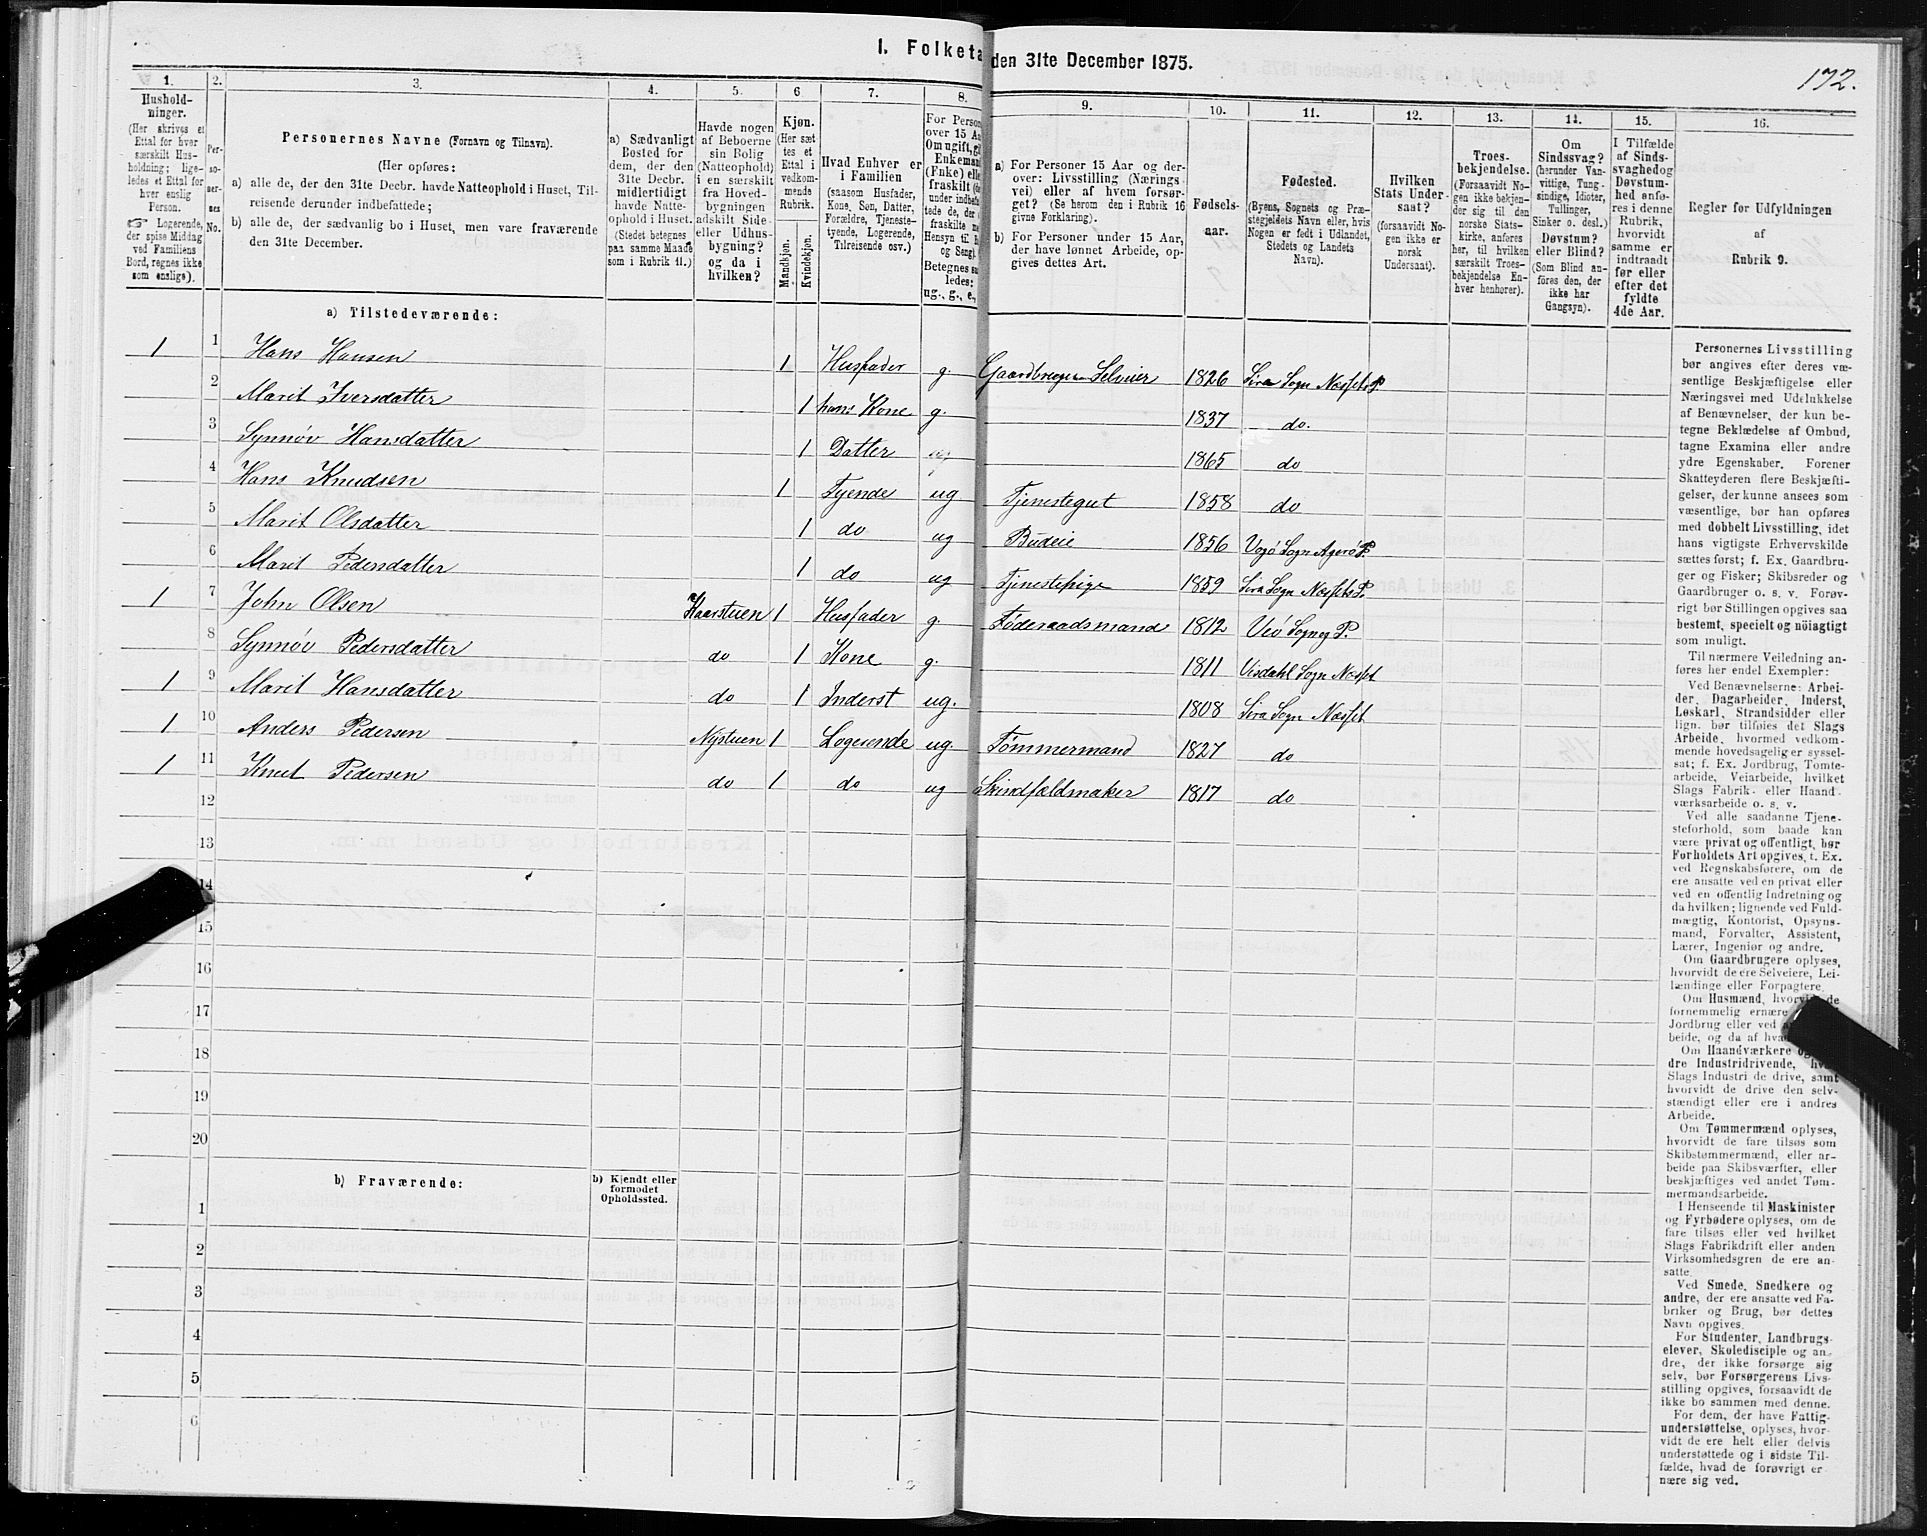 1. Folketa den 31te December 1875.
172.
1. 2. 3. 4. 5. 6 7. 8. 9. 10. 11. 12. 13. 14. 15. 16.
Hushold-
ninger.
(Her skrives et
Ettal for hver
særskilt Hus-
holdning; lige-
ledes et Ettal for
hver enslig
Person.
☞ Logerende,
der spise Middag
ved Familiens
Bord, regnes ikke
som enslige).
Per-
so-
ner-
nes
No.
Personernes Navne (Fornavn og Tilnavn).
(Her opføres:
a) alle de, der den 31te Decbr. havde Natteophold i Huset, Til-
reisende derunder indbefattede;
b) alle de, der sædvanlig bo i Huset, men vare fraværende
den 31te December.
a) Sædvanligt
Bosted for
dem, der den
31te Decbr.
midlertidigt
havde Natte-
ophold i Huset.
(Stedet betegnes
paa samme Maade
som i Rubrik 11.)
Havde nogen
af Beboerne
sin Bolig
(Natteophold)
i en særskilt
fra Hoved-
bygningen
adskilt Side-
eller Udhus-
bygning?
og da i
hvilken?
Kjøn.
(Her sæt
tes et
Ettal i
vedkom-
mende
Rubrik.
Mandkjøn.
Kvindekjøn.
Hvad Enhver er
i Familien
(saasom Husfader,
Kone, Søn, Datter,
Forældre, Tjeneste-
tyende, Logerende,
Tilreisende osv.)
For Person
over 15 Aa
Om ugift, gi
Enkeman
(Enke) elle
fraskilt
under indbefat
tede de, der
fraskilte
Hensyn til
og Seng).
Betegnes saa
ledes:
ug., g., e.,
a) For Personer 15 Aar og der-
over: Livsstilling (Nærings
vei) eller af hvem forsør-
get? (Se herom den i Rubrik 16
givne Forklaring).
b) For Personer under 15 Aar,
der have lønnet Arbeide, op-
gives dettes Art.
Fødsels-
aar.
Fødested.
(Byens, Sognets og Præ-
stegjeldets Navn eller, hvis
Nogen er født i Udlandet,
Stedets og Landets
Navn).
Hvilken
Stats Under-
saat?
(forsaavidt No-
gen ikke er
norsk
Undersaat).
Troes-
bekjendelse.
(Forsaavidt No-
gen ikke bekjen-
der sig til den
norske Stats-
kirke, anføres
her, til hvilken
særskilt Troes-
bekjendelse En-
hver henhører).
Om
Sindssvag?
(herunder Van-
vittige, Tung-
sindige, Idioter,
Tullinger,
Sinker o. desl.)
Døvstum?
eller Blind?
(Som Blind an-
føres den, der
ikke har
Gangsyn).
I Tilfælde
af Sinds-
svaghed og
Døvstum-
hed anfø-
res i denne
Rubrik,
hvorvidt
samme er
indtraadt
før eller
efter det
fyldte
4de Aar.
Regler for Udfyldningen
af
Rubrik 9.
a) Tilstedeværende:
1 1 Hans Hansen 1 Husfader g Gaardbruger Selveier 1826 Sira Sogn Næssets P
2 Marit Iversdatter 1 hans Kone g. 1837 do.
3 Synnøv Hansdatter 1 Datter ug 1865 do
4 Hans Knudsen 1 Tyende ug Tjenestegut 1858 do
5 Marit Olsdatter 1 do ug Budeie 1856 Vogø Sogn Agerø P.
6 Marit Pedersdatter 1 do ug Tjenestepige 1859 Sira Sogn Næssets P.
1 7 John Olsen Kaarstuen 1 Husfader g. Føderaadsmand 1812 Veø Sogn og P.
8 Synnøv Pedersdatter do 1 Kone g. 1811 Visdahl Sogn Næsset
1 9 Marit Hansdatter do 1 Inderst ug. 1808 Sira Sogn Næsset
1 10 Anders Pedersen Nystuen 1 Logerende ug. Tømmermand 1827 do
1 11 Knut Pedersen do 1 do ug Skindfældmaker 1817 do
12
13
14
15
16
17
18
19
20
b) Fraværende:
b) Kjendt eller
formodet
Opholdssted.
1
2
3
4
5
6
Personernes Livsstilling
bør angives efter deres væ-
sentlige Beskjæftigelse eller
Næringsvei med Udelukkelse
af Benævnelser, der kun be-
tegne Beklædelse af Ombud,
tagne Examina eller andre
ydre Egenskaber. Forener
Skatteyderen flere Beskjæfti-
gelser, der kunne ansees som
væsentlige, bør han opføres
med dobbelt Livsstilling, idet
hans vigtigste Erhvervskilde
sættes først; f. Ex. Gaardbru-
ger og Fisker; Skibsreder og
Gaardbruger o. s. v. Forøv-
rigt bør Stillingen opgives saa
bestemt, specielt og nöiagtigt
som muligt.
Til nærmere Veiledning an-
føres her endel Exempler:
Ved Benævnelserne: Arbei-
der, Dagarbeider, Inderst,
Løskarl, Strandsidder eller
lign. bør tilføies det Slags
Arbeide, hvormed vedkom-
mende hovedsagelig er syssel-
sat; f. Ex. Jordbrug, Tomte-
arbeide, Veiarbeide, hvilket
Slags Fabrik- eller Haand-
værksarbeide o. s. v.
Ved alle saadanne Tjene-
steforhold, som baade kan
være privat og offentligt, bør
Forholdets Art opgives, t. Ex.
ved Regnskabsførere, om de
ere ansatte ved en privat eller
ved en offentlig Indretning og
da hvilken; lignende ved Fuld-
mægtig, Kontorist, Opsyns-
mand, Forvalter, Assistent,
Lærer, Ingeniør og andre.
Om Gaardbrugere oplyses,
hvorvidt de ere Selveiere, Lei-
lændinge eller Forpagtere.
Om Husmænd, hvorvidt de
fornemmelig ernære
Jordbrug eller ved
beide, og da af
Om Haandværkere og
dre Industridrivende,
Slags Industri de drive, samt
hvorvidt de drive den selv-
stændigt eller ere i andres
Arbeide.
Om Tømmermænd oplyses,
hvorvidt de fare tilsøs som
Skibstømmermænd, eller ar-
beide paa Skibsværfter, eller
beskjæftiges ved andet Tøm-
mermandsarbeide.
I Henseende til Maskinister
og Fyrbødere oplyses, om de
fare tilsøs eller ved hvilket
Slags Fabrikdrift eller anden
Virksomhedsgren de ere an-
satte.
Ved Smede, Snedkere og
andre, der ere ansatte ved Fa-
briker og Brug, bør dettes
Navn opgives.
For Studenter, Landbrugs-
elever, Skoledisciple og an-
dre, der ikke forsørge sig
selv, bør Forsørgerens Livs-
stilling opgives, forsaavidt de
ikke bo sammen med denne.
For dem, der have Fattig-
understøttelse, oplyses, hvor-
vidt de ere helt eller delvis
understøttede og i sidste Til-
fælde, hvad de forøvrigt er-
nære sig ved.